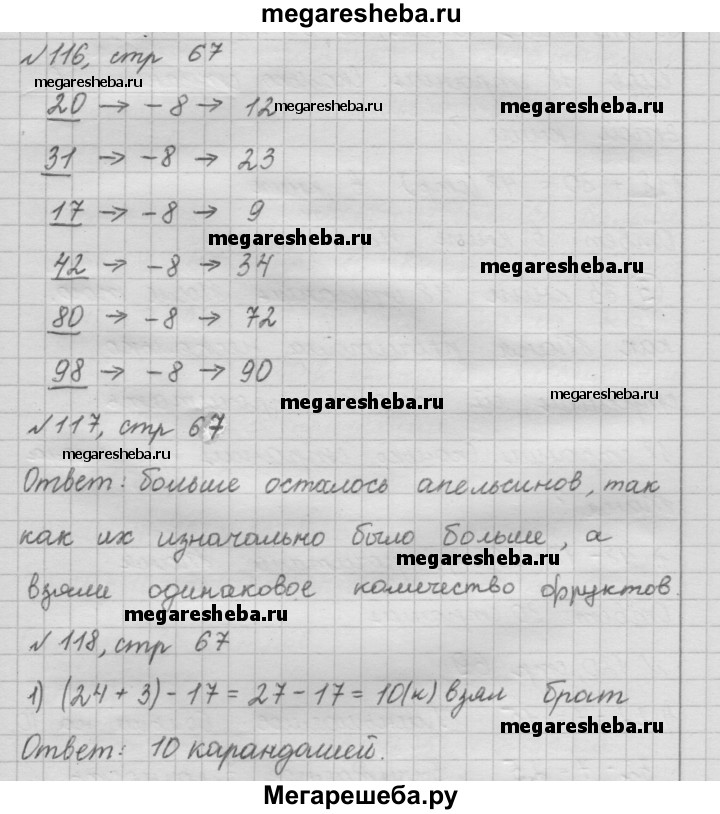 megaresheba.ru
№116, стр 67
megaresheba.ru
20 → -8 → 12 megaresheba.ru megaresheba.ru
31 → -8 → 23
17 → -8 → 9
megaresheba.ru
42 → -8 → 34 megaresheba.ru
80 → -8 → 72
98 → -8 → 90
megaresheba.ru megaresheba.ru
№117, стр 67
megaresheba.ru
Ответ: больше осталось апельсинов, так
как их изначально было больше, а
megaresheba.ru
взяли одинаковое количество фруктов.
megaresheba.ru
№118, стр 67
1) (24 + 3) - 17 = 27 - 17 = 10(к) взял брат
megaresheba.ru
Ответ: 10 карандашей.
Мегарешеба.ру